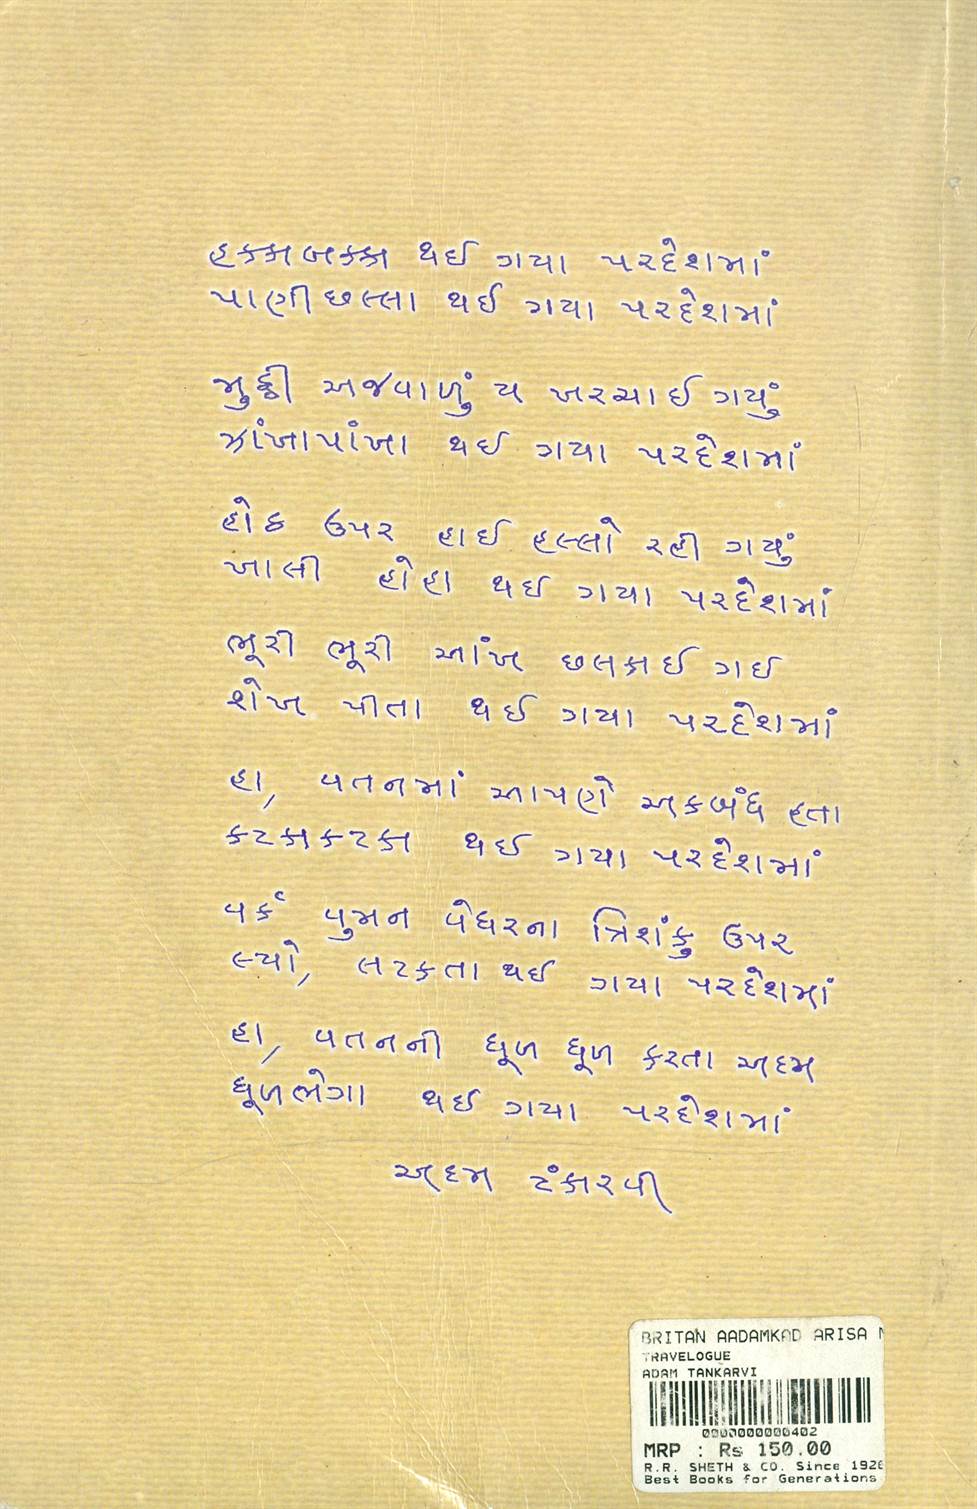 હક્કાબક્કા થઈ ગયા પરદેશમાં
પાણીછલ્લા થઈ ગયા પરદેશમાં
મુઠ્ઠી અજવાળું ય ખરચાઈ ગયું
ઝાંખાપાંખા થઈ ગયા પરદેશમાં
હોઠ ઉપર હાઈ હલ્લો રહી ગયું
ખાલી હોહા થઈ ગયા પરદેશમાં
ભૂરી ભૂરી આંખ છલકાઈ ગઈ
શેખ પીતા થઈ ગયા પરદેશમાં
હા, વતનમાં આપણે અકબંધ હતા
કટકાકટકા થઈ ગયા પરદેશમાં
વર્ક વુમન વેધરના ત્રિશંકુ ઉપર
લ્યો, લટકતા થઈ ગયા પરદેશમાં
હા, વતનની ધૂળ ધૂળ કરતા અદમ
ધૂળભેગા થઈ ગયા પરદેશમાં
અદમ ટંકારવી
BRITAN AADAMKAD ARISA
TRAVELOGUE
ADAM TANKARVI
0000000000402
MRP : Rs 150.00
R.R. SHETH & CO. Since 1926
Best Books for Generations